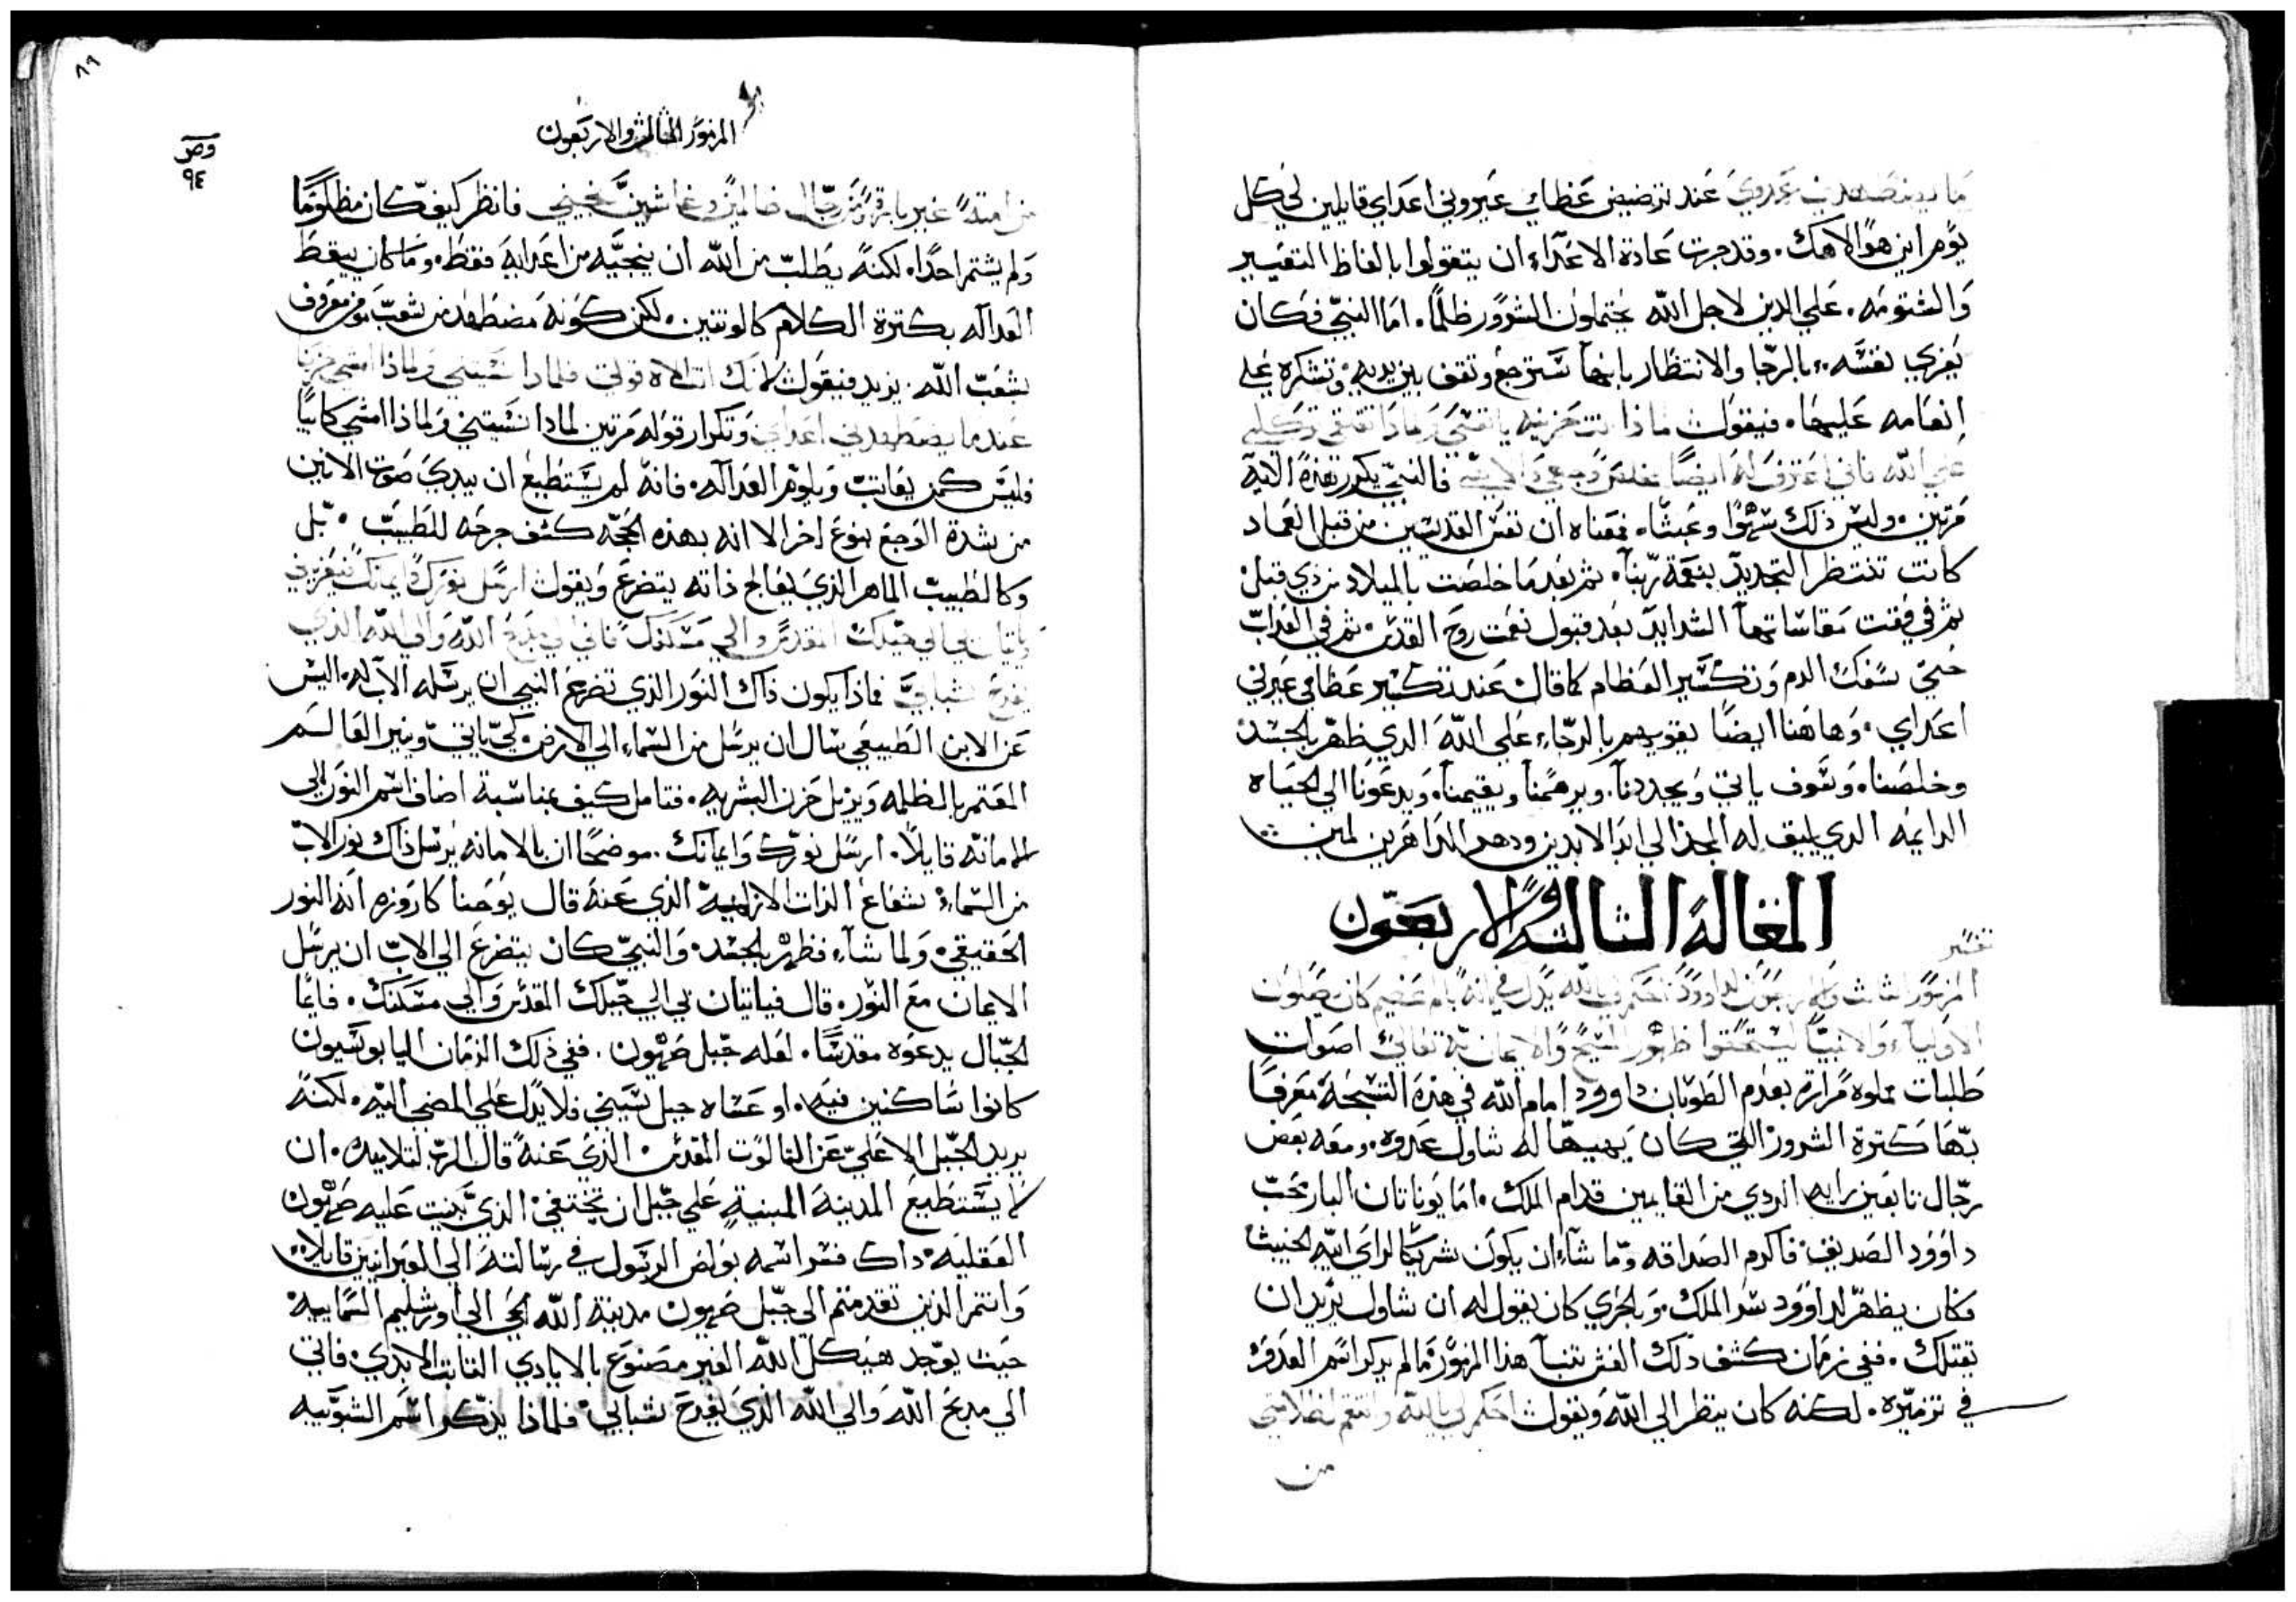 ما يضطهدني عدوي عند ترضيض عظامي عيروني اعداي قايلين لي كل
يوم اين هو الاهك. وقد جرت عادة الاعداء ان يتقولوا بالفاظ التعيير
والشتومه. علي الذين لاجل الله يحتملون الشرور ظلمًا. اما النبي فكان
يعزي نفسه بالرجا والانتظار بانها سترجع وتقف بين يديه وتشكره علي
انعامه عليها. فيقول لماذا انت حزينه يا نفسي ولماذا تقلقي توكلي
علي الله فاني اعترف له ايضًا خلاص وجهي والاهي فالنبي يكرر هذه الايه
مرتين. وليس ذلك سهوًا وعبثًا. فمعناه ان نفس القديسين من قبل العماد
كانت تنتظر التجديد بنعمة ربنا. ثم بعدما خلصت بالميلاد من ذي قبل
ثم في وقت مقاساتها الشدايد بعد قبول نعمت روح القدس. ثم في العذاب
حتي سفك الدم وتكسير العظام كما قال عند تكسير عظامي عيرني
اعداي. وهاهنا ايضًا يقويهم بالرجاء علي الله الذي ظهر بالجسد
وخلصنا. وسوف ياتي ويجددنا. ويرحمنا ويقيمنا. ويدعونا الي الحياه
الدايمه الذي يليق له المجد الي ابد الابدين ودهر الداهرين امين
المقالة الثالثة والاربعون
تفسير
المزمور الثالث والاربعون لداوود احكم لي يا الله يدل علي انه بالم عظيم كان يصلون
الاوليآء والانبيآ ليستحقوا ظهور المسيح والايمان به تعالي اصوات
طلبات مملوه مرارة يقدم الطوبان داوود امام الله في هذه التسبحة معرفا
بها كثرة الشرور التي كان يهيها له شاول عدوه. ومعه بعض
رجال تابعين رايه الردي من القايمين قدام الملك. اما يوناتان البار محب
داوود الصديق. فاكرم الصداقه وما شاء ان يكون شريكا لراي ابيه الخبيث
فكان يظهر لداوود سر الملك. وبالحري كان يقول له ان شاول يريد ان
يقتلك. ففي زمان كشف ذلك الغش تنبآ هذا المزمور. مالم يذكر اسم العدو
في تزميره. لكنه كان ينظر الي الله ويقول احكم لي يا الله وانتقم لظلامتي
من
٨٩
المزمور الثالث والاربعون
وص
٩٤
من امتة غير بارة ومن رجال ظالمين وغاشين نجيني فانظر كيف كان مظلومًا
ولم يشتم احدًا. لكنه يطلب من الله ان ينجيه من اعدايه فقط. وما كان يبقط
العداله بكثرة الكلام كالوثنين. لكن كونه مضطهد من شعب موفر معروف
بشعب الله. يزيد فيقول لانك انت الاه قوتي فلماذا نسيتني ولماذا امشي حزينا
عندما يضطهدني اعداي وتكرار قوله مرتين لماذا نسيتني ولماذا امشي كاىبًا
فليس كمن يعاتب ويلوم العداله. فانه لم يستطيع ان يبدي صوت الانين
من شدة الوجع بنوع اخر الا انه بهذه الحجه كشف جرحه للطبيب. بل
وكالطبيب الماهر الذي يعالج ذاته يتضرع ويقول ارسل نورك وايمانك فيعزياني
وياتيان بي الي جبلك المقدس والي مسكنك فاتي الي مذبح الله والي الله الذي
يفرح شبابي فماذا يكون ذاك النور الذي تضرع النبي ان يرسله الاب له. اليس
عن الابن الطبيعي سال ان يرسل من السماء الي الارض. كي ياتي وينير العالم
المعتم بالظلمه ويزيل حزن البشريه. فتامل كيف بمناسبة اضاف اسم النور الي
الامانه قايلًا. ارسل نورك وايمانك. موضحًا ان بالامانه يرسل ذاك نور الاب
من السماء. شعاع الذات الازليه الذي عنه قال يوحنا كاروزه انه النور
الحقيقي. ولما شآء فظهر بالجسد. والنبي كان يتضرع الي الاب ان يرسل
الايمان مع النور. قال فياتيان بي الي جبلك المقدس والي مسكنك. فايما
الجبال يدعوه مقدسًا. لعله جبل صهيون. ففي ذلك الزمان اليابوسيون
كانوا ساكنين فيه. او عساه جبل سيني فلا يدل علي المضي اليه. لكنه
يريد الجبل الاعلي عن الثالوت المقدس. الذي عنه قال الرب لتلاميذه. ان
لا يستطيع المدينة المبنية علي جبل ان تختفي. الذي بنيت عليه صهيون
العقليه. داك فسر اسمه بولص الرسول في رسالته الي العبرانيين قايلا
وانتم الذين تقدمتم الي جبل صهيون مدينة الله الحي الي اورشليم السمايية
حيث يوجد هيكل الله الغير مصنوع بالايادي الثابت الابدي. فاتي
الي مذبح الله والي الله الذي يفرح شبابي. فلماذا يذكر اسم الشوبيه